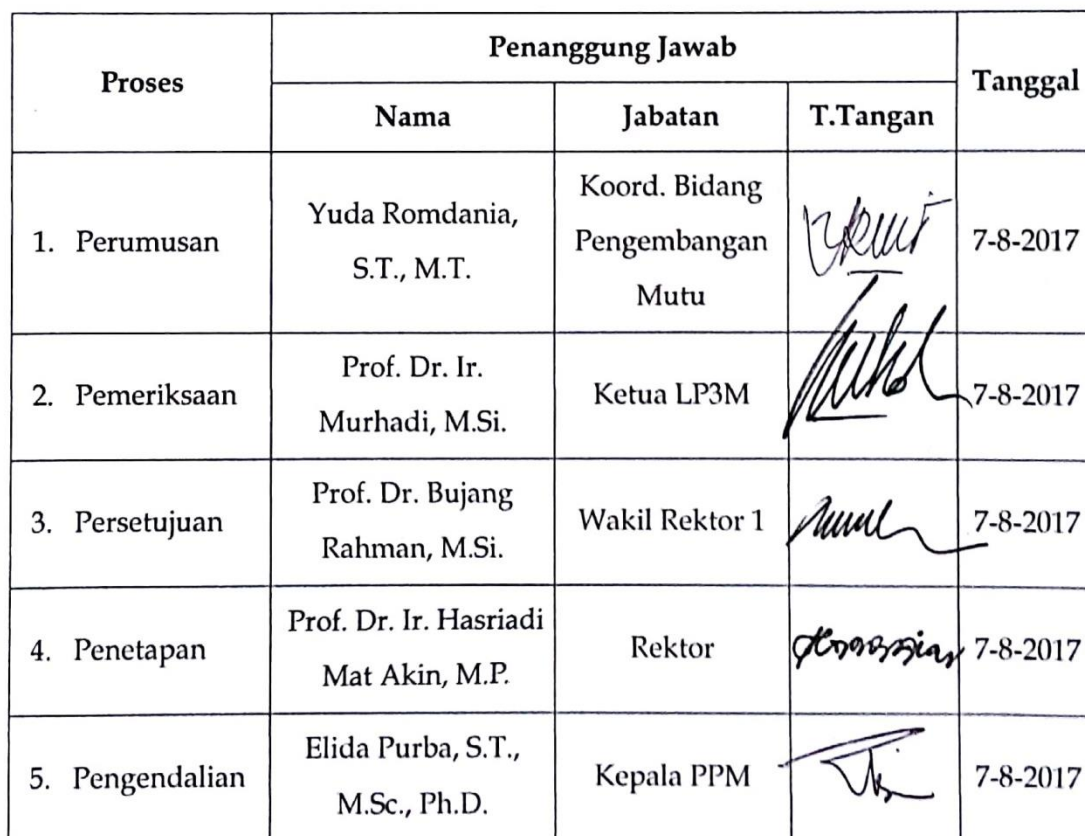 Proses
Penanggung Jawab
Tanggal
Nama
Jabatan
T.Tangan
1. Perumusan
Yuda Romdania,
S.T., M.T.
Koord. Bidang
Pengembangan
Mutu
7-8-2017
2. Pemeriksaan
Prof. Dr. Ir.
Murhadi, M.Si.
Ketua LP3M
7-8-2017
3. Persetujuan
Prof. Dr. Bujang
Rahman, M.Si.
Wakil Rektor 1
7-8-2017
4. Penetapan
Prof. Dr. Ir. Hasriadi
Mat Akin, M.P.
Rektor
7-8-2017
5. Pengendalian
Elida Purba, S.T.,
M.Sc., Ph.D.
Kepala PPM
7-8-2017